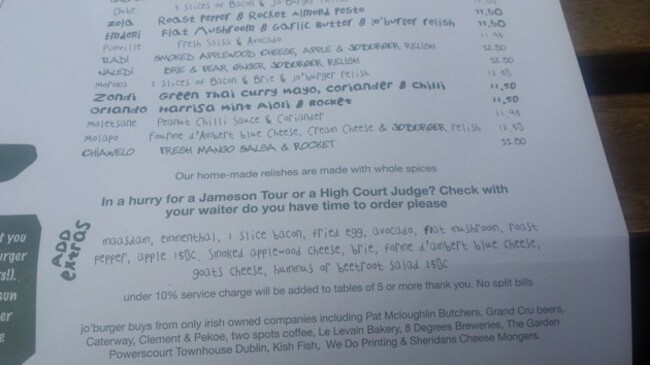 3 slices of Bacon & Jo'burger relish
Zola Roast Pepper & Rocket Almond Pesto 11.50
Emdeni Flat Mushroom & Garlic Butter & jo'burger relish 11.50
Pimville Fresh Salsa & Avocado 11.95
TLADI SMOKED APPLEWOOD CHEESE, APPLE & JOBURGER RELISH 12.50
NALEDI BRIE & PEAR GINGER JOBURGER RELISH 12.50
Moroka 2 slices of Bacon & Brie & jo'burger relish
Zondi Green Thai Curry Mayo, Coriander & Chilli 11.50
Orlando Harrisa Mint Aioli & Rocket 11.50
Moletsane Peanut Chilli Sauce & Coriander 11.95
Molapo Fourme d'Ambert blue Cheese, Cream Cheese & JOBURGER relish
CHIAWELO FRESH MANGO SALSA & ROCKET
Our home-made relishes are made with whole spices
In a hurry for a Jameson Tour or a High Court Judge? Check with
your waiter do you have time to order please
ADD
extras
maasdam, emmenthal, 1 slice bacon, fried egg, avocado, flat mushroom, roast
pepper, apple 150c, smoked applewood cheese, brie, forme d'ambert blue cheese,
goats cheese, hummus or beetroot salad 250c
under 10% service charge will be added to tables of 5 or more thank you. No split bills
jo'burger buys from only irish owned companies including Pat Mcloughlin Butchers, Grand Cru beers,
Caterway, Clement & Pekoe, two spots coffee, Le Levain Bakery, 8 Degrees Breweries, The Garden
Powerscourt Townhouse Dublin, Kish Fish, We Do Printing & Sheridans Cheese Mongers.
t you
urger
s!).
sun
er
e